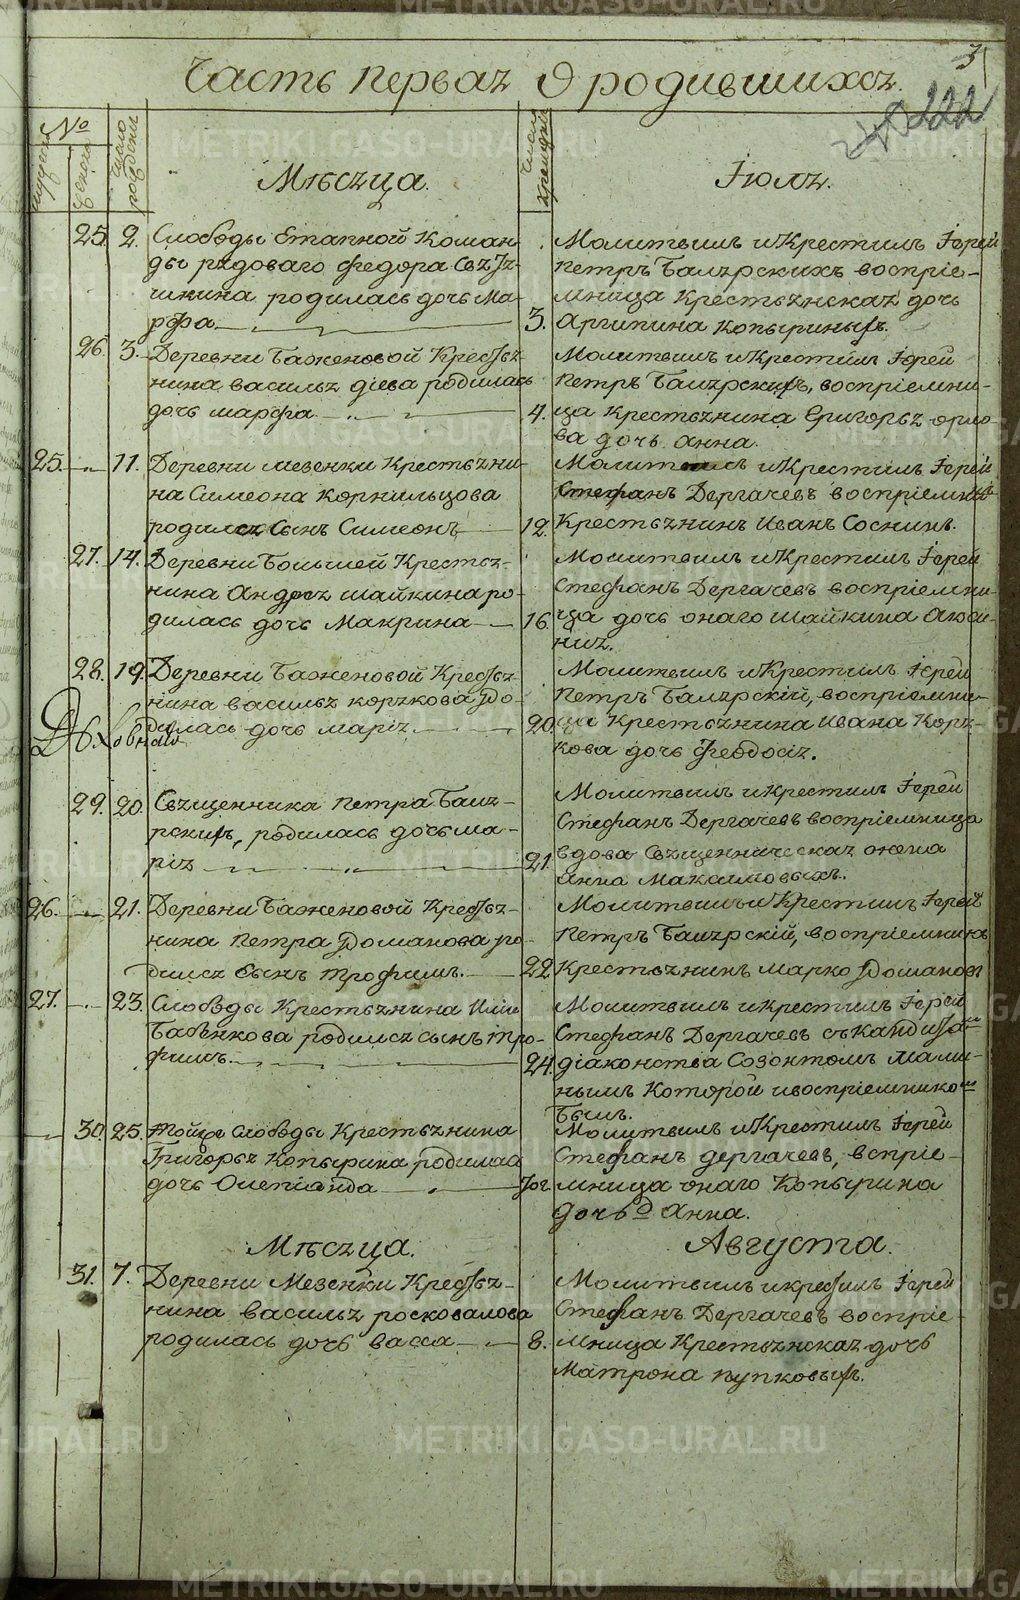 3
Часть первая О родившихся.
222
№
мужеска
женска
число рождения
число крещения
Мѣсяца.
Іюля.
25. 2. Слободы Етапной Коман-
ды рядоваго Федора
родилась дочь Ма-
рфа.
Молитвилъ и Крестилъ Іерей
Петръ Балярскихъ воспріе-
мница Крестьянская дочь
3. Агрипина Копыриныхъ.
26. 3. Деревни Баженовой Крестья-
нина Василья діева родилась
дочь марфа
Молитвилъ и Крестилъ Іерей
Петръ Балярскихъ, воспріемни-
4. ца Крестьянина Григорья орло-
ва дочь Анна.
25. 11. Деревни мезенки Крестьяни-
на Симеона Корнильцова
родился Сынъ Симеонъ
Молитвилъ и Крестилъ Іерей
Стефанъ Дергачевъ воспріемникъ
12. Крестьянинъ Иванъ Соснинъ.
27. 14. Деревни Большей Крестья-
нина Андрея шайкина ро-
дилась дочь Макрина
Молитвилъ и Крестилъ Іерей
Стефанъ Дергачевъ воспріемни-
16. ца дочь онаго шайкина
28. 19. Деревни Баженовой Крестья-
нина Василья корякова ро-
дилась дочь марія
Молитвилъ и Крестилъ Іерей
Петръ Балярскій, воспріемни-
20. ца Крестьянина Ивана Коря-
кова дочь Феодосія.
29. 20. Священника Петра Баля-
рскихъ, родилась дочь ма-
рія
Молитвилъ и крестилъ Іерей
Стефанъ Дергачевъ воспріемница
21. вдова Священническая жена
Анна Максимовыхъ.
26. 21. Деревни Баженовой Крестья-
нина Петра Доманова ро-
дился Сынъ Трофимъ.
Молитвилъ и Крестилъ Іерей
Петръ Балярскій, воспріемникъ
22. Крестьянинъ Марко Домановъ
27. 23. Слободы Крестьянина Ильи
Бабенкова родился сынъ тро-
фимъ.
Молитвилъ и крестилъ Іерей
Стефанъ Дергачевъ съ
24. діаконства Созонтомъ Мали-
нымъ Которой и воспріемникомъ
Былъ.
30. 25. тойже Слободы Крестьянина
Григорья Копырина родилась
дочь
Молитвилъ и Крестилъ Іерей
Стефанъ дергачевъ, воспріе-
мница онаго Копырина
дочь Анна.
Мѣсяца.
Августа.
31. 7. Деревни Мезенки Крестья-
нина Василья росковалова
родилась дочь Васса
Молитвилъ и крестилъ Іерей
Стефанъ Дергачевъ воспріе-
8. мница Крестьянская дочь
Матрона пупковыхъ.
METRIKI.GASO-URAL.RU